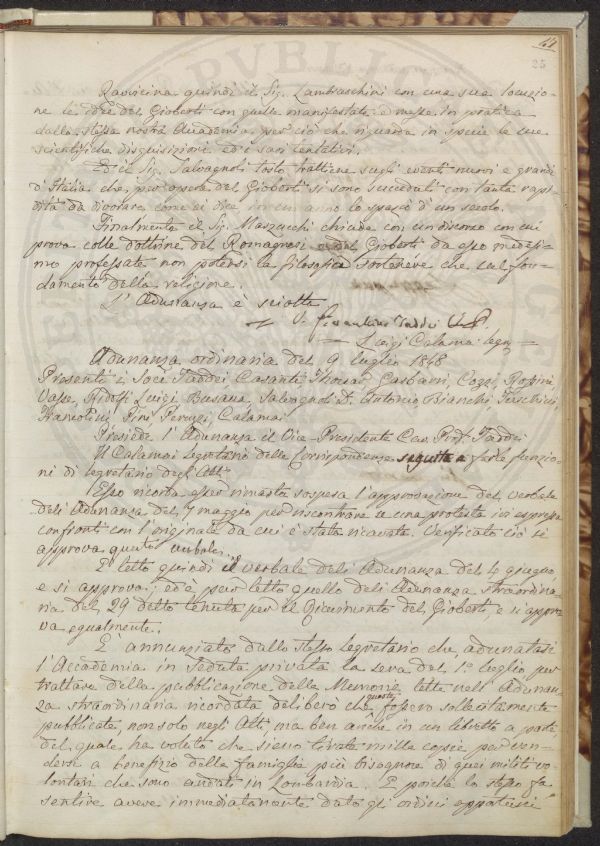 47
25
Ravvicina quindi il Sig. Lambruschini con una sua locuzio-
ne le idee del Gioberti con quelle manifestate e messe in pratica
dalla stessa nostra Accademia per ciò che riguarda in specie le sue
scientifiche disquisizioni ed i suoi tentativi.
Ed il Sig. Salvagnoli tosto trattiene sugli eventi nuovi e grandi
d'Italia che per opera del Gioberti si sono succeduti con tanta rapi-
dità da divorare come si dice in un anno lo spazio d'un secolo.
Finalmente il Sig. Marzucchi chiude con un discorso con cui
prova colle dottrine del Romagnosi e del Gioberti da esso medesi-
mo professate non potersi la filosofia sostenere che sul fon-
damento della religione.
L'Adunanza è sciolta
Taddei V. P.
Luigi Calamai Segr.
Adunanza ordinaria del 9 luglio 1848
Presenti i Soci Taddei Casanti Thouar, Gasbarri, Cozzi, Rossini
Vaso, Ridolfi Luigi, Busana, Salvagnoli D. Antonio, Bianchi,
Francolini, Pini Peruzzi, Calamai
Presiede l'Adunanza il Vice-Presidente Cav. Prof. Taddei
Il Calamai Segretario delle Corrispondenze seguita a far le funzio-
ni di Segretario degli Atti.
Esso ricorda esser rimasta sospesa l'approvazione del verbale
dell'Adunanza del 7 maggio per riscontrare se una protesta ivi espressa
confronti con l'originale da cui è stata ricavata. Verificato ciò si
approva questo verbale.
È letto quindi il verbale dell'Adunanza del 4 giugno
e si approva; ed è pure letto quello dell'Adunanza straordina-
ria del 29 detto tenuta per il ricevimento del Gioberti, e si appro-
va egualmente.
È annunziato dallo stesso Segretario che, adunatasi
l'Accademia in seduta privata la sera del 1º luglio per
trattare della pubblicazione delle Memorie lette nell'Adunan-
za straordinaria ricordata deliberò che queste fossero sollecitamente
pubblicate, non solo negli Atti, ma ben anche in un libretto a parte
del quale ha voluto che sieno tirate mille copie per ven-
dersi a benefizio delle famiglie più bisognose di quei militi vo-
lontari che sono andati in Lombardia. E poichè lo stesso fa
sentire avere immediatamente dato gli ordini